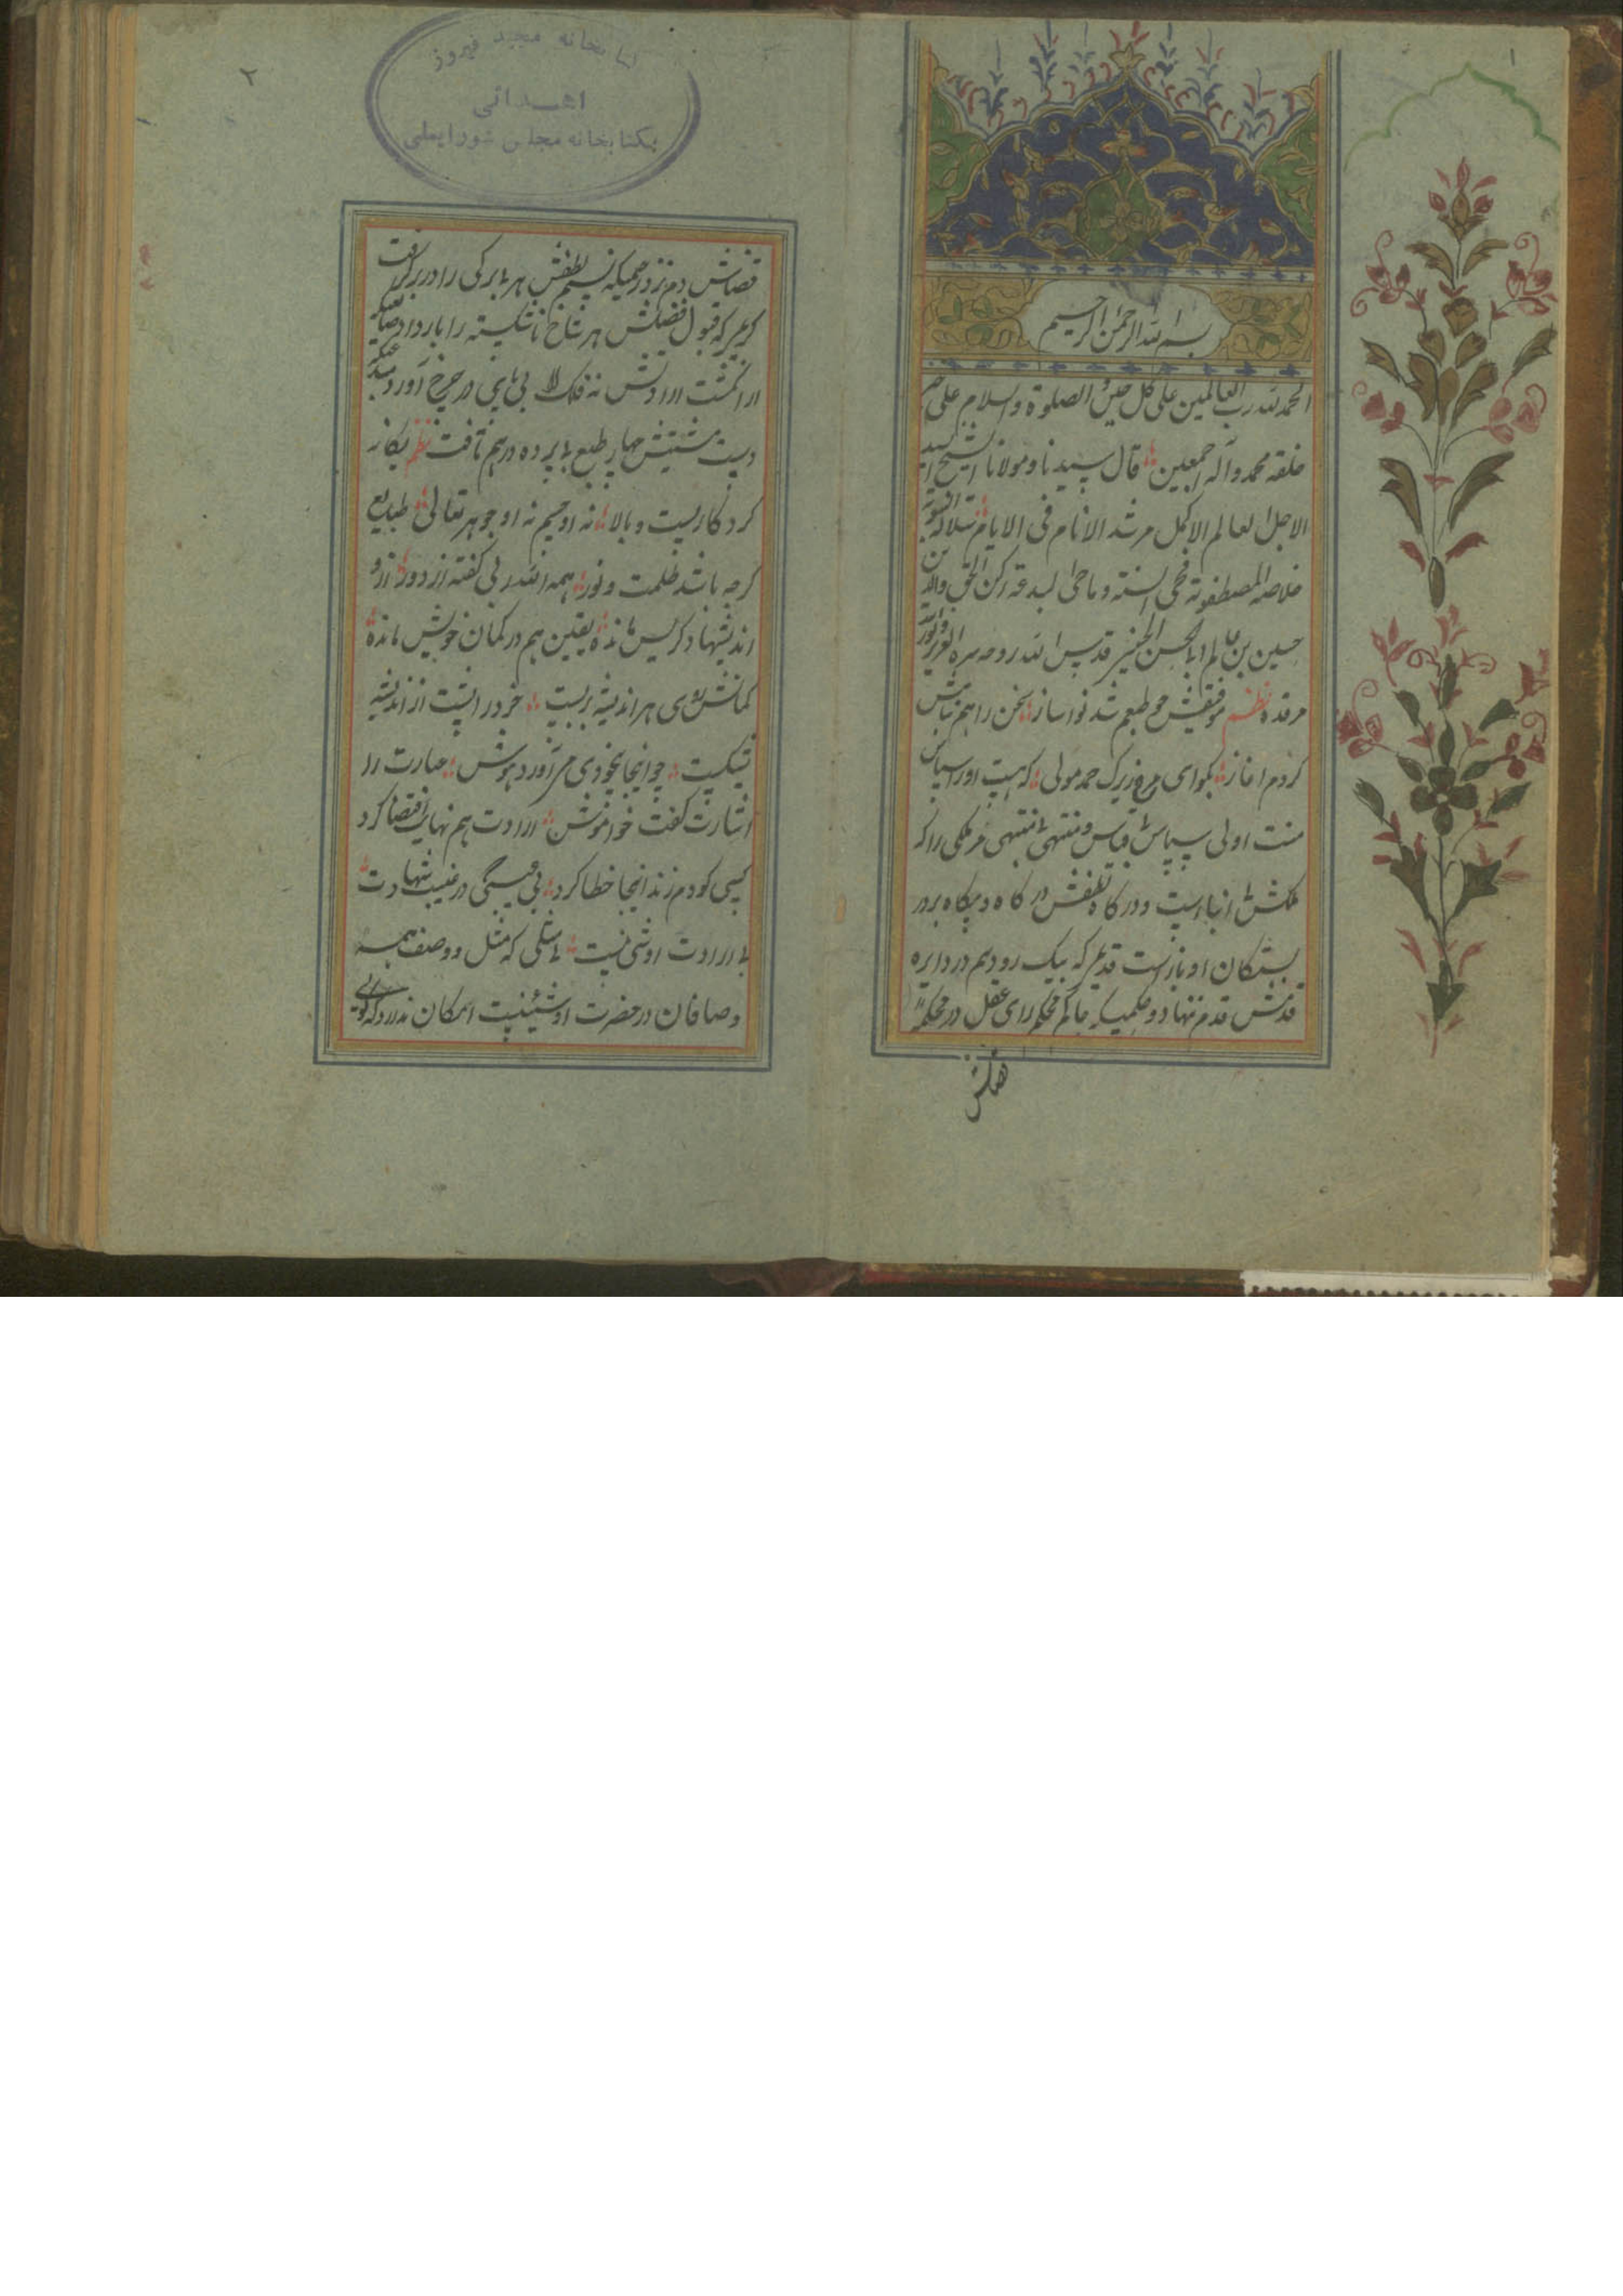 ۱
بسم الله الرحمن الرحیم
الحمد لله رب العالمین علی کل حین الصلوة والسلام علی خیر
خلقه محمد وآله اجمعین قال سیدنا ومولانا الشیخ السید
الاجل العالم الاکمل مرشد الانام فی الایام سلالة النبویة
خلاصة المصطفویة محی السنة وماحی البدعة رکن الحق والدین
حسین بن عالم ابی الحسن الحسینی قدس الله روحه سره العزیز ونور
مرقده نظم موفقش چو طبعم شد نواساز سخن را هم بنامش
کردم اغاز بگو ای مرغ زیرک حمد مولی که هست اورا سپاس
منت اولی سپاس بی قیاس و منتهی بی منتهی مر ملکی را که
ملکش بی انباز است و درگاه لطفش در گاه و بیگاه بر در
بستگان او باز است قدیمی که پیک رو دیم در دایره
قدمش قدم ننهاد و حکمیکه حاکم محکم رای عقل در محکمه
قضاش
۲
کتابخانه مجید فیروز
اهدائی
بکتابخانه مجلس شورایملی
قضاش دم نزد رحیمیکه نسیم لطفش هر بی برکی را در بر گرفت
کریمی که قبول فضلش هر شاخ شکسته را بار داد صانعیکه
از انکشت ارادتش نه فلک بی پای در چرخ آورد مبدعیکه
دست مشیتش چهار طبع بی پرده درهم تافت نظم یکانه
کرد کاریست و بالا نه او جسم نه او جوهر تعالی طبایع
کرچه باشد ظلمت و نور همه الله ربی کفته از دور ازو
اندیشها دکر پس مانده یقین هم در کمان خویش مانده
کمانش ره هر اندیشه بربست خرد را پشت از اندیشه
بشکست چو اینجا بیخودی می آورد هوش عبارت را
اشارت کفت خواموش ارادت هم نهایت اقتضا کرد
کسی کو دم زند اینجا خطا کرد بی هیچکی در غیب شهادت
بی ارادت او شی نیست بی مثلی که مثل و وصف همه
وصافان در حضرت او شینیست امکان ندارد که